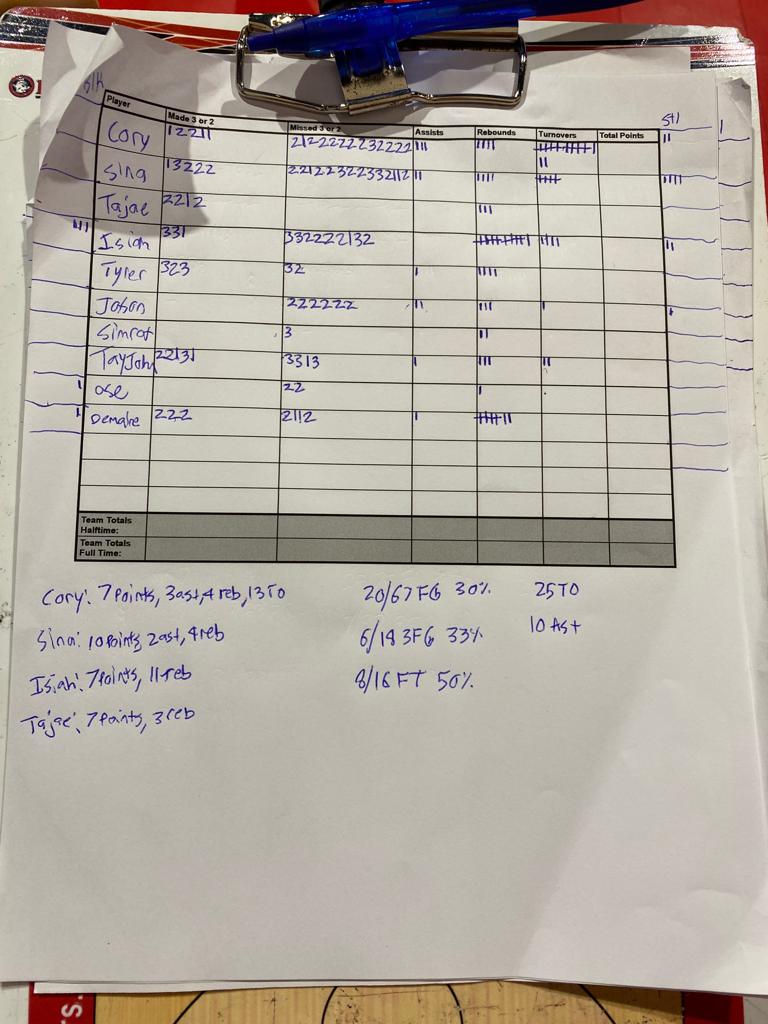 blk
Player Made 3 or 2 Missed 3 or 2 Assists Rebounds Turnovers Total Points stl
Cory 12211 2122222232222 III IIII II
Sina 13222 22122322332112 II IIII IIII
Tajae 2212 III
Isiah 331 332222132 IIII II
Tyler 323 32 I IIII
Jobon 222222 II III I I
Simrat 3 II
TayJohn 22131 3313 I III II
I ose 22 I
I Demaire 222 2112 I
Team Totals
Halftime:
Team Totals
Full Time:
Cory: 7 Points, 3ast, 4 reb, 13 TO 20/67 FG 30% 25 TO
Sina: 10 points, 2ast, 4reb 6/18 3FG 33% 10 Ast
Isiah: 7 points, 11 reb 8/16 FT 50%
Tajae: 7 Points, 3 reb